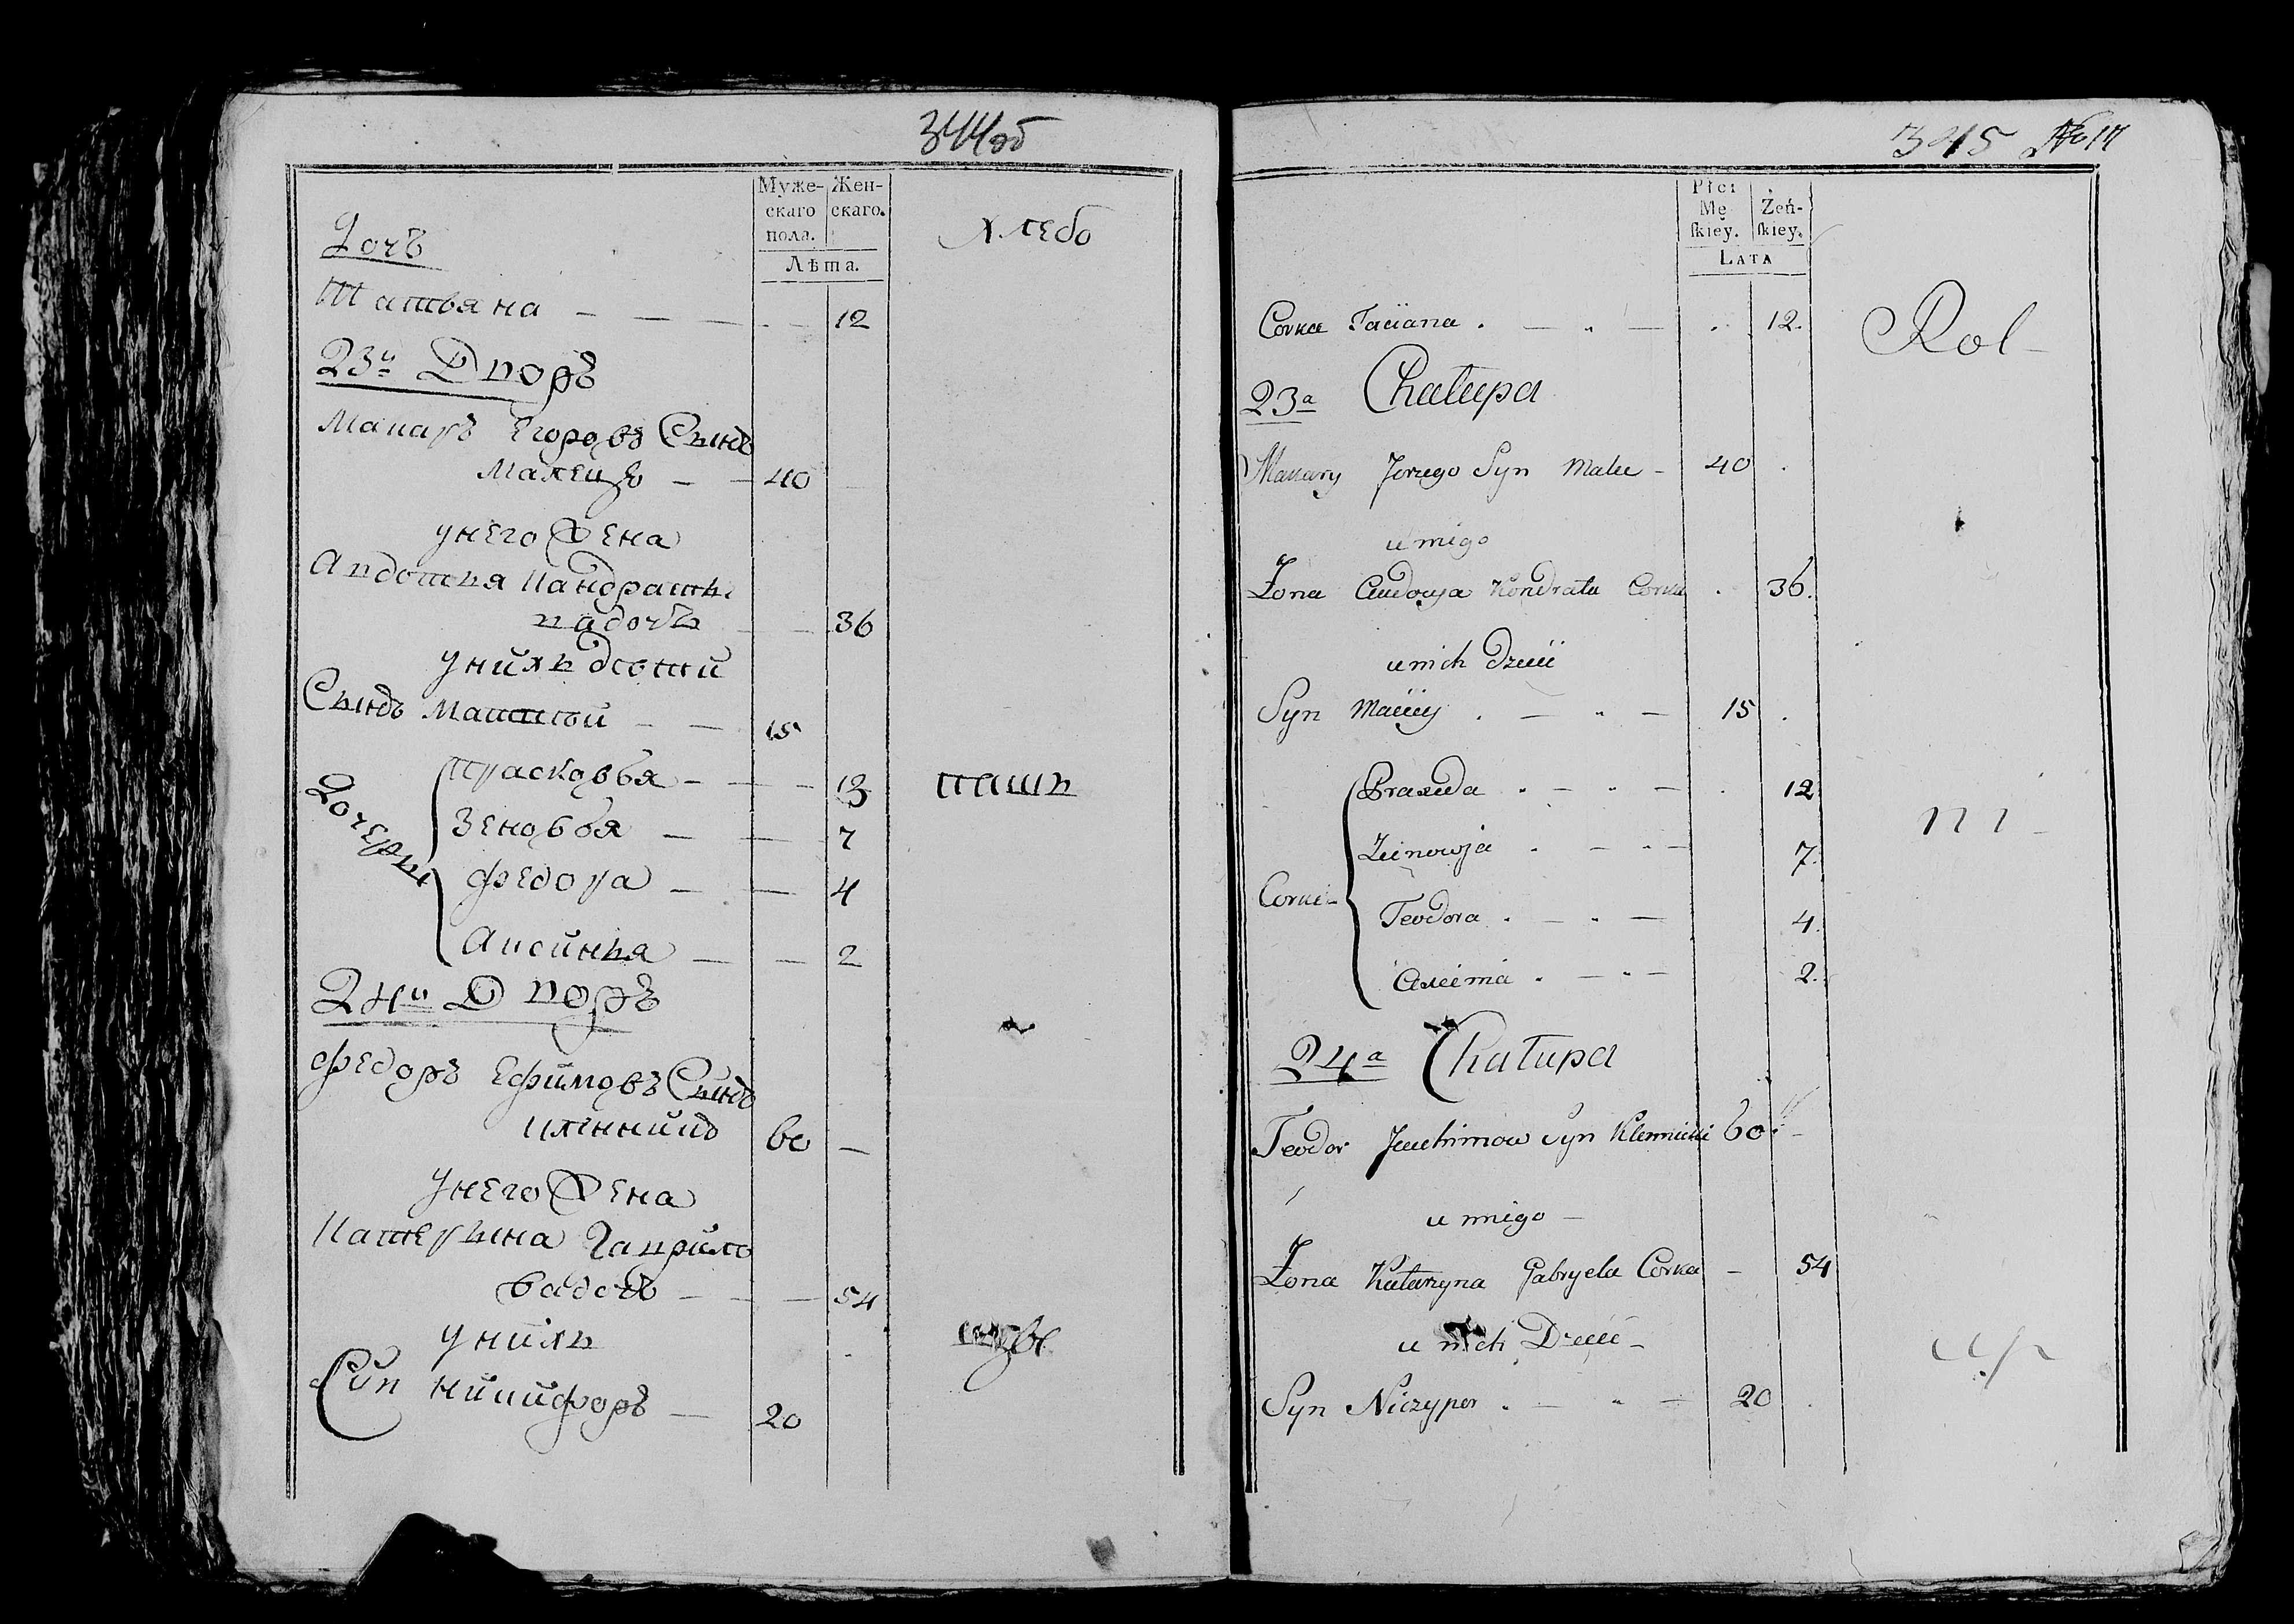 344об
Муже-
скаго
пола.
Жен-
скаго.
Лѣта.
хлебо
Дочъ
Татьяна — — — 12
23й Дворъ
Макаръ Егоровъ Сынъ
Малецъ — — 40
унего жена
Авдотья Кандрать
вадочь 36
унихъ дети
Сынъ Матвей — — 15
Дочери
Прасковья — — 13
Зеновья — — 7
Федора — — 4
Аксинья — — 2
паши
24й Дворъ
Федоръ Ефимовъ Сынъ
60 —
унего жена
Катерына Гаврило
вадочь — — 54
унихъ
Сын Никифоръ — 20
345 No 17
Płci
Mę
ſkiey.
Żeń-
ſkiey.
Lata
Rol-
Corka Taciana . — „ — . 12.
23a Chałupa
Makary Jorzego Syn Malec — 40 .
u niego
Żona Audocya Kondrata Corka . 36.
u nich Dzieci
Syn Maciey . — „ — 15 .
Corki
Praxeda „ — „ — . 12
Zeinowja . — „ — 7.
Teodora . — „ — 4.
Axeinia . — „ — 2.
ni-
24a Chałupa
Teodor Jeuchimow Syn Klennicki 60. —
u niego —
Żona Katarzyna Gabryela Corka — 54
u nich Dzieci —
Syn Niczypor . — „ — 20 .